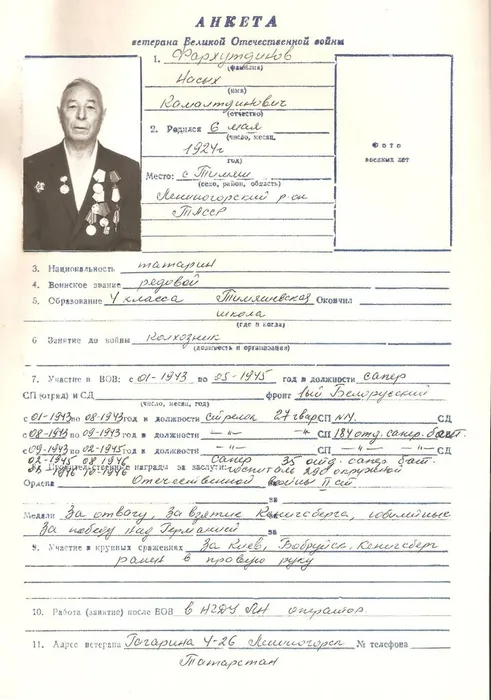 АНКЕТА
ветерана Великой Отечественной войны
1. Фархутдинов
(фамилия)
Насых
(имя)
Камалтдинович
(отчество)
2. Родился 6 мая
(число, месяц,
1924г
год)
Место: с Тимяш
(село, район, область)
Лениногорский р-он
ТАССР
Фото
военных лет
3. Национальность татарин
4. Воинское звание рядовой
5. Образование 4 класса Тимяшевская Окончил
школа
(где и когда)
6 Занятие до войны колхозник
(должность и организация)
7. Участие в ВОВ: с 01-1943 по 05-1945 год в должности сапер
СП (отряд) и СД фронт 1ый Белорусский
(число, месяц, год)
с 01-1943 по 08-1943 год в должности Стрелок 27 гвар СП СД
с 08-1943 по 09-1943 год в должности —"— —"— СП 184 отд. сапер. бат.
с 09-1943 по 02-1945 год в должности —"— —"— СП —"— —"— СД
02-1945 08-1946 сапер 35 сапер. бат.
10-1946 Правительственное награды за заслуги: госпиталь 290 окружной
Ордена Отечественной войны II ст.
за
Медали За отвагу, За взятие Кенигсберга, юбилейные
За победу над Германией за
9. Участие в крупных сражениях За Киев, Бобруйск, Кенигсберг
ранен в правую руку
10. Работа (занятие) после ВОВ в НГДУ ЛН оператор
11. Адрес ветерана Гагарина 4-26 Лениногорск № телефона
Татарстан